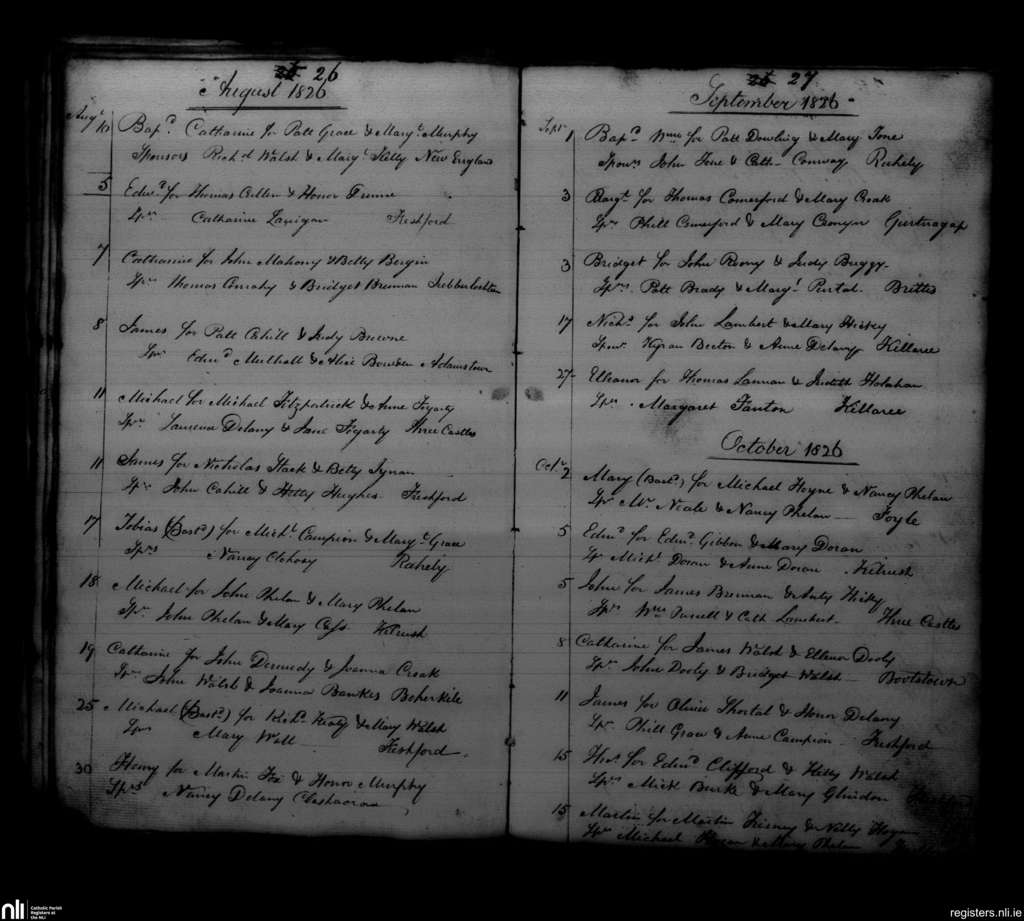 26
August 1826
Bapd. Catharine for Patt Grace & Mary Murphy
Sponsors Richd Walsh & Mary Kelly New England
5 Edwd. for Thomas Cullen & Honor Funne
Sprs Catharine Lanigan Freshford
7 Catharine for John Mahony & Betty Bergin
Sprs Thomas & Bridget Brennan
8 James for Patt Cahill & Judy Browne
Sprs Edwd Mulhall & Alice Bowden Adamstown
11 Michael for Michael Fitzpatrick & Anne Fogarty
Sprs Laurence Delany & Jane Fogarty Three Castles
11 James for Nicholas Stack & Betty Tynan
Sprs John Cahill & Hetty Hughes Freshford
17 Tobias (Bastd) for Michl Campion & Mary Grace
Sprs Nancy Clohosy Rahely
18 Michael for John Phelan & Mary Phelan
Sprs John Phelan & Mary Cass Kilrush
19 Catharine for John Dermody & Joanna Croak
Sprs John Walsh & Joanna Bankes Boherkile
25 Michael (Bastd) for Richd. Healy & Mary Walsh
Sprs Mary Wall Freshford
30 Henry for Martin Fox & Honor Murphy
Sprs Nancy Delany Clashacrow
27
September 1826
Septr 1 Bapd Wm for Patt Dowling & Mary Tone
Spons John Tone & Cath Conway Rahely
3 Margt for Thomas Comerford & Mary Croak
Sprs Phill Comerford & Mary Cronyn Gurtnagap
3 Bridget for John Roony & Judy Buggy
Sprs Patt Brady & Mary Purtal Brittas
17 Nichs for John Lambert & Mary Hicky
Sponr Kyran Becton & Anne Delany Killaree
27 Elleanor for Thomas Lannan & Judith Holahan
Sprs Margaret Fanton Killaree
October 1826
Octr 2 Mary (Bastd) for Michael Hoyne & Nancy Phelan
Sprs Mr. Neale & Nancy Phelan Foyle
5 Edwd for Edwd Gibbon & Mary Doran
Sprs Michl Doran & Anne Doran Kilrush
5 John for James Brennan & Anty Hicky
Sprs Wm Purcell & Cath Lambert Three Castles
8 Catharine for James Walsh & Ellenor Dooly
Sprs John Dooly & Bridget Walsh Bootstown
11 James for Oliver Shortal & Honor Delany
Sprs Phill Grace & Anne Campion Freshford
15 for Edwd Clifford & Kitty Walsh
Sprs Mick Burke & Mary Glindon
15 Martin for Martin Kierney & Nelly
Sprs Michael & Mary Phelan
nli
Catholic Parish
Registers at
the NLI
registers.nli.ie